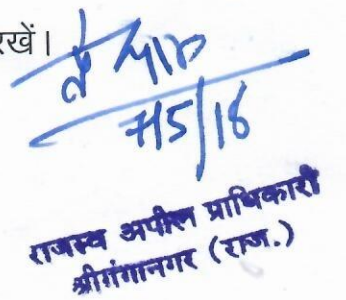 रखें।
7/5/18
राजस्व अपील प्राधिकारी
श्रीगंगानगर (राज.)